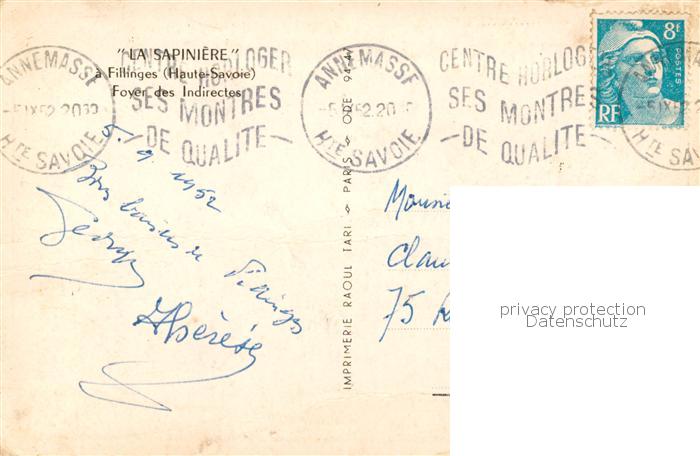 "LA SAPINIÈRE"
à Fillinges (Haute-Savoie)
Foyer des Indirectes
ANNEMASSE
-5 IX 52.20
HTE SAVOIE
CENTRE HORLOGER
SES MONTRES
-DE QUALITE-
ANNEMASSE
-5 IX 52.20
HTE SAVOIE
CENTRE HORLOGER
SES MONTRES
-DE QUALITE-
8F
POSTES
RF
HTE SAVOIE
5. 9. 1952
Bons baisers de Fillinges
Georges
Thérèse
IMPRIMERIE RAOUL TARI - PARIS - ODE 94-47
Monsie
Clau
75
privacy protection
Datenschutz